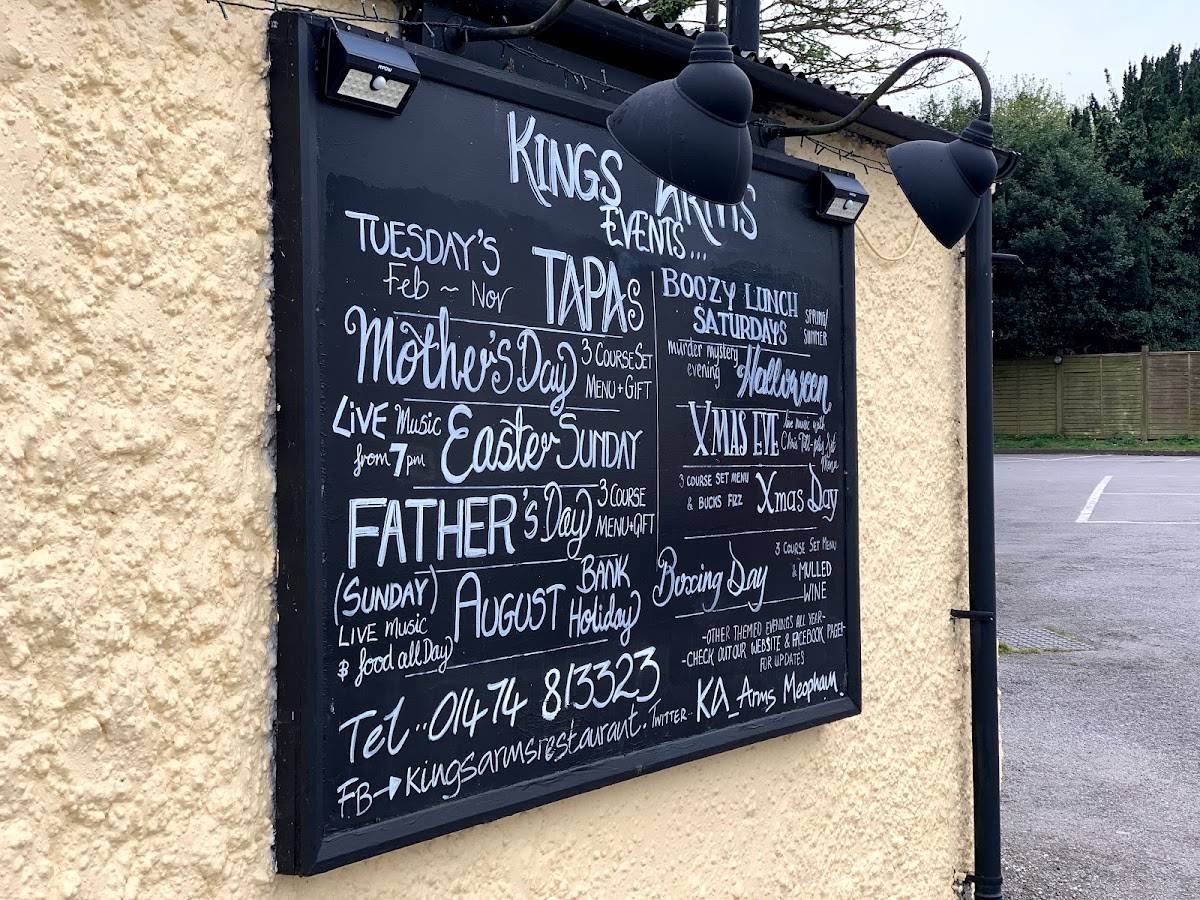 KINGS ARMS
EVENTS...
TUESDAY'S
Feb ~ Nov
TAPAs
Mother's Day
3 COURSE SET
MENU + GIFT
LIVE Music
from 7pm
Easter SUNDAY
FATHER's Day
3 COURSE
MENU+GIFT
(SUNDAY)
LIVE Music
& food all Day
AUGUST BANK
Holiday
BOOZY LUNCH
SATURDAYS
SPRING/
SUMMER
murder mystery
evening
Halloween
XMAS EVE
live music with
Menu
3 COURSE SET MENU
& BUCKS FIZZ
Xmas Day
Boxing Day
3 COURSE SET MENU
& MULLED
WINE
-OTHER THEMED EVENINGS ALL YEAR-
-CHECK OUT OUR WEBSITE & FACEBOOK PAGE!-
FOR UPDATES
Tel..01474 813323
FB→kingsarmsrestaurant. TWITTER.. KA_Arms Meopham